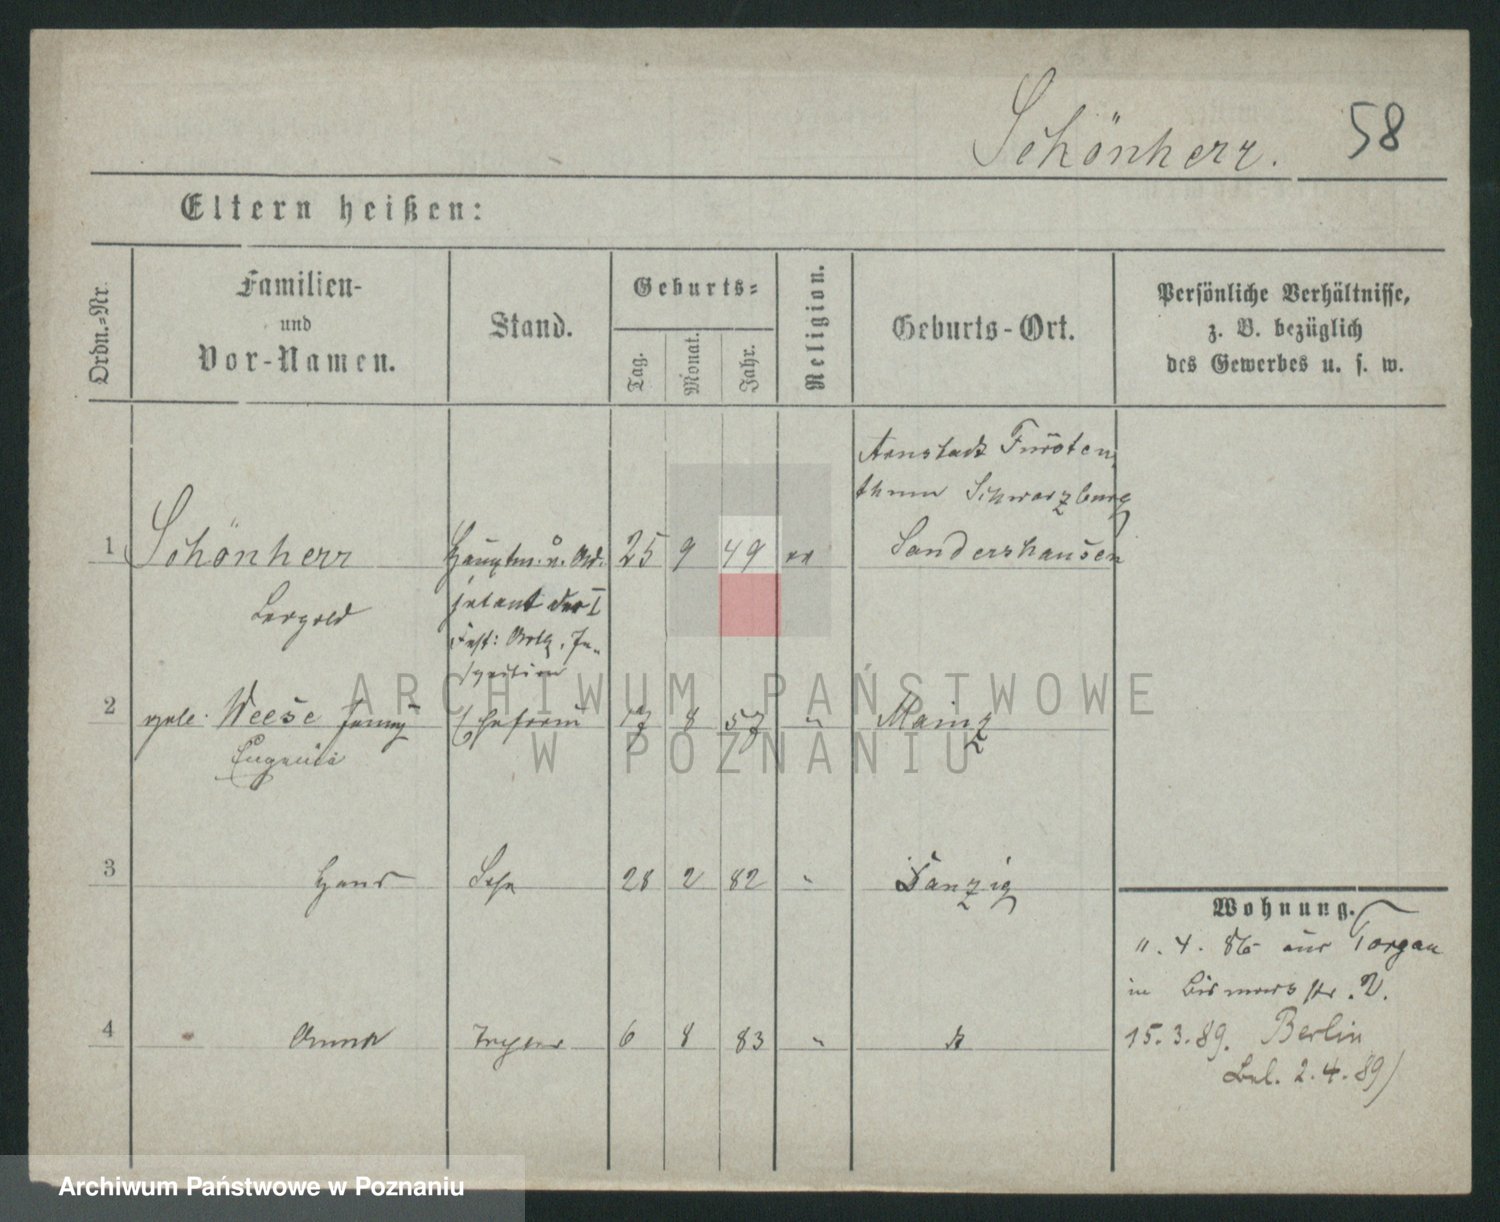 Schönherr. 58
Eltern heißen:
Ordn.-Nr.
Familien-
und
Vor-Namen.
Stand.
Geburts-
Tag.
Monat.
Jahr.
Religion.
Geburts-Ort.
Persönliche Verhältnisse,
z. B. bezüglich
des Gewerbes u. s. w.
Arnstadt Fürsten
thum Schwarzburg
1 Schönherr Hauptm. u. Ad- 25 9 49 ev Sondershausen
Leopold
jutant der I
Fest: Artl. In-
spection
2 geb: Weese Jenny Ehefrau 17 8 57 " Mainz
Eugenie
3 Hans Sohn 28 2 82 " Danzig
Wohnung.
11. 4. 86 aus Torgau
in Bismarckstr. 2.
4 Tochter 6 8 83 "
15. 3. 89. Berlin
2. 4. 89)
ARCHIWUM PAŃSTWOWE
W POZNANIU
Archiwum Państwowe w Poznaniu